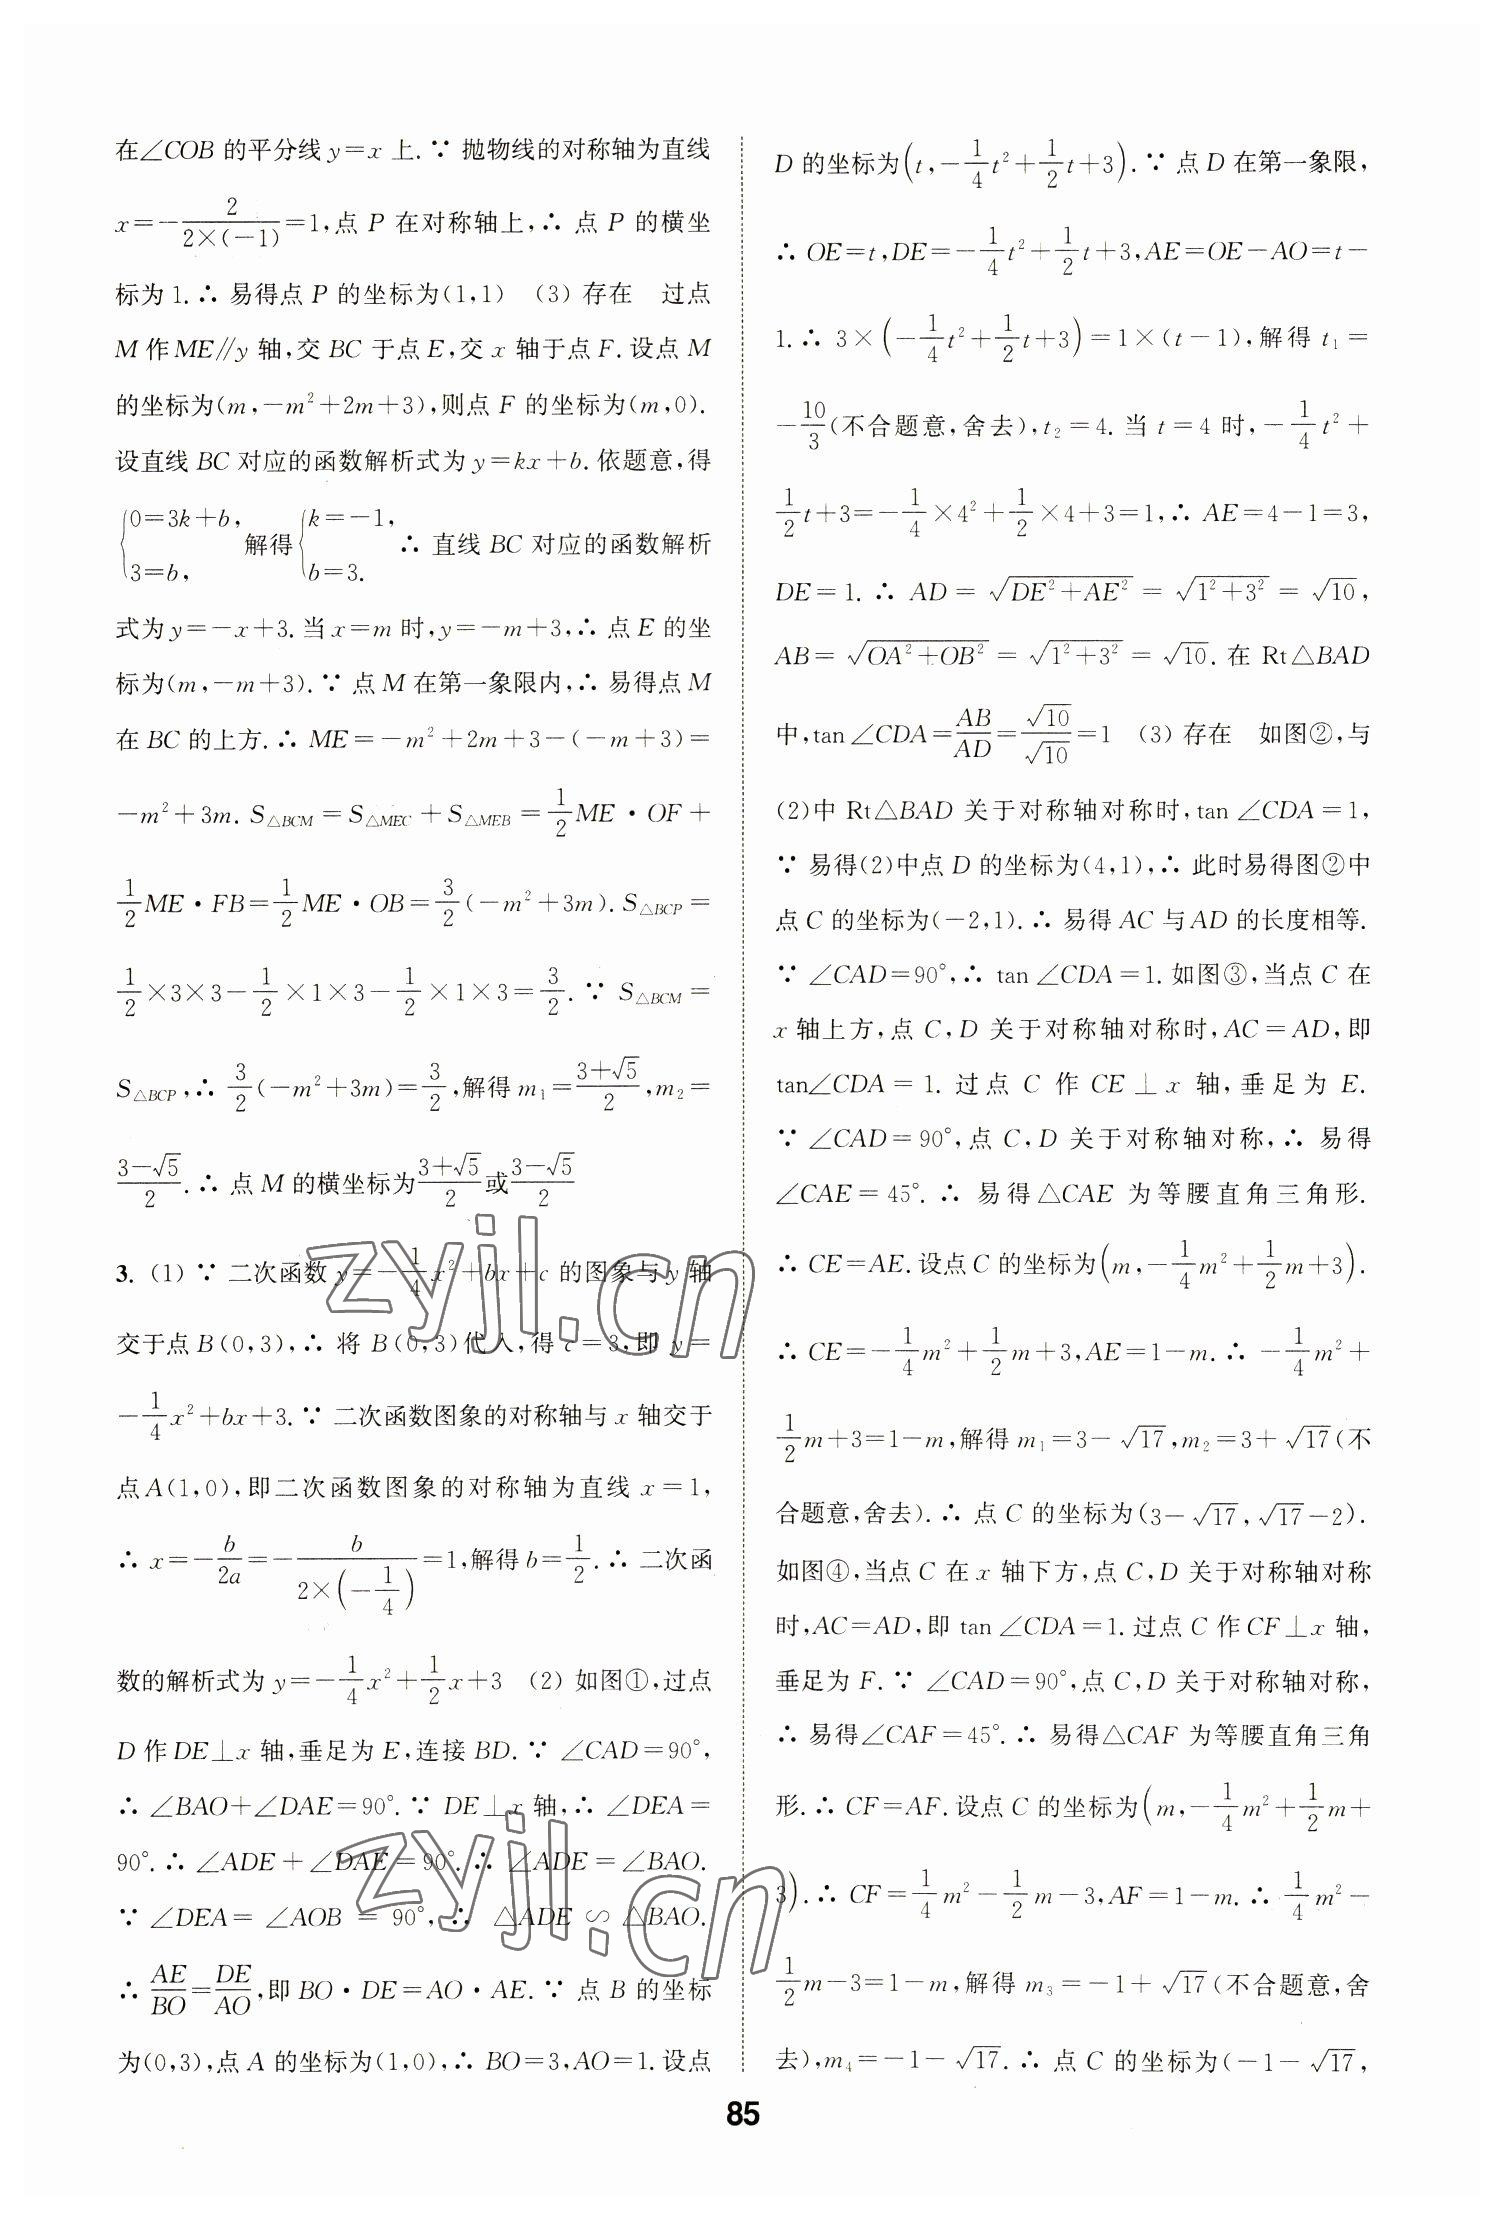 在∠COB 的平分线 y=x 上.∵ 抛物线的对称轴为直线
x=-\frac{2}{2×(-1)}=1,点 P 在对称轴上,∴ 点 P 的横坐
标为 1.∴ 易得点 P 的坐标为(1,1) (3) 存在 过点
M 作 ME∥y 轴,交 BC 于点 E,交 x 轴于点 F.设点 M
的坐标为(m,-m²+2m+3),则点 F 的坐标为(m,0).
设直线 BC 对应的函数解析式为 y=kx+b.依题意,得
{0=3k+b, 3=b, 解得 {k=-1, b=3. ∴ 直线 BC 对应的函数解析
式为 y=-x+3.当 x=m 时,y=-m+3,∴ 点 E 的坐
标为(m,-m+3).∵ 点 M 在第一象限内,∴ 易得点 M
在 BC 的上方.∴ ME=-m²+2m+3-(-m+3)=
-m²+3m.S△BCM=S△MEC+S△MEB=\frac{1}{2}ME·OF+
\frac{1}{2}ME·FB=\frac{1}{2}ME·OB=\frac{3}{2}(-m²+3m).S△BCP=
\frac{1}{2}×3×3-\frac{1}{2}×1×3-\frac{1}{2}×1×3=\frac{3}{2}.∵ S△BCM=
S△BCP,∴ \frac{3}{2}(-m²+3m)=\frac{3}{2},解得 m₁=\frac{3+√5}{2},m₂=
\frac{3-√5}{2}.∴ 点 M 的横坐标为\frac{3+√5}{2}或\frac{3-√5}{2}
3. (1) ∵ 二次函数 y=-\frac{1}{4}x²+bx+c 的图象与 y 轴
交于点 B(0,3),∴ 将 B(0,3)代入,得 c=3,即 y=
-\frac{1}{4}x²+bx+3.∵ 二次函数图象的对称轴与 x 轴交于
点 A(1,0),即二次函数图象的对称轴为直线 x=1,
∴ x=-\frac{b}{2a}=-\frac{b}{2×(-\frac{1}{4})}=1,解得 b=\frac{1}{2}.∴ 二次函
数的解析式为 y=-\frac{1}{4}x²+\frac{1}{2}x+3 (2) 如图①,过点
D 作 DE⊥x 轴,垂足为 E,连接 BD.∵ ∠CAD=90°,
∴ ∠BAO+∠DAE=90°.∵ DE⊥x 轴,∴ ∠DEA=
90°.∴ ∠ADE+∠DAE=90°.∴ ∠ADE=∠BAO.
∵ ∠DEA=∠AOB=90°,∴ △ADE∽△BAO.
∴ \frac{AE}{BO}=\frac{DE}{AO},即 BO·DE=AO·AE.∵ 点 B 的坐标
为(0,3),点 A 的坐标为(1,0),∴ BO=3,AO=1.设点
D 的坐标为(t,-\frac{1}{4}t²+\frac{1}{2}t+3).∵ 点 D 在第一象限,
∴ OE=t,DE=-\frac{1}{4}t²+\frac{1}{2}t+3,AE=OE-AO=t-
1.∴ 3×(-\frac{1}{4}t²+\frac{1}{2}t+3)=1×(t-1),解得 t₁=
-\frac{10}{3}(不合题意,舍去),t₂=4.当 t=4 时,-\frac{1}{4}t²+
\frac{1}{2}t+3=-\frac{1}{4}×4²+\frac{1}{2}×4+3=1,∴ AE=4-1=3,
DE=1.∴ AD=√(DE²+AE²)=√(1²+3²)=√10,
AB=√(OA²+OB²)=√(1²+3²)=√10.在 Rt△BAD
中,tan∠CDA=\frac{AB}{AD}=\frac{√10}{√10}=1 (3) 存在 如图②,与
(2)中 Rt△BAD 关于对称轴对称时,tan∠CDA=1,
∵ 易得(2)中点 D 的坐标为(4,1),∴ 此时易得图②中
点 C 的坐标为(-2,1).∴ 易得 AC 与 AD 的长度相等.
∵ ∠CAD=90°,∴ tan∠CDA=1.如图③,当点 C 在
x 轴上方,点 C,D 关于对称轴对称时,AC=AD,即
tan∠CDA=1.过点 C 作 CE⊥x 轴,垂足为 E.
∵ ∠CAD=90°,点 C,D 关于对称轴对称,∴ 易得
∠CAE=45°.∴ 易得△CAE 为等腰直角三角形.
∴ CE=AE.设点 C 的坐标为(m,-\frac{1}{4}m²+\frac{1}{2}m+3).
∴ CE=-\frac{1}{4}m²+\frac{1}{2}m+3,AE=1-m.∴ -\frac{1}{4}m²+
\frac{1}{2}m+3=1-m,解得 m₁=3-√17,m₂=3+√17(不
合题意,舍去).∴ 点 C 的坐标为(3-√17,√17-2).
如图④,当点 C 在 x 轴下方,点 C,D 关于对称轴对称
时,AC=AD,即 tan∠CDA=1.过点 C 作 CF⊥x 轴,
垂足为 F.∵ ∠CAD=90°,点 C,D 关于对称轴对称,
∴ 易得∠CAF=45°.∴ 易得△CAF 为等腰直角三角
形.∴ CF=AF.设点 C 的坐标为(m,-\frac{1}{4}m²+\frac{1}{2}m+
3).∴ CF=\frac{1}{4}m²-\frac{1}{2}m-3,AF=1-m.∴ \frac{1}{4}m²-
\frac{1}{2}m-3=1-m,解得 m₃=-1+√17(不合题意,舍
去),m₄=-1-√17.∴ 点 C 的坐标为(-1-√17,
85
zyjl.cn
zyjl.cn